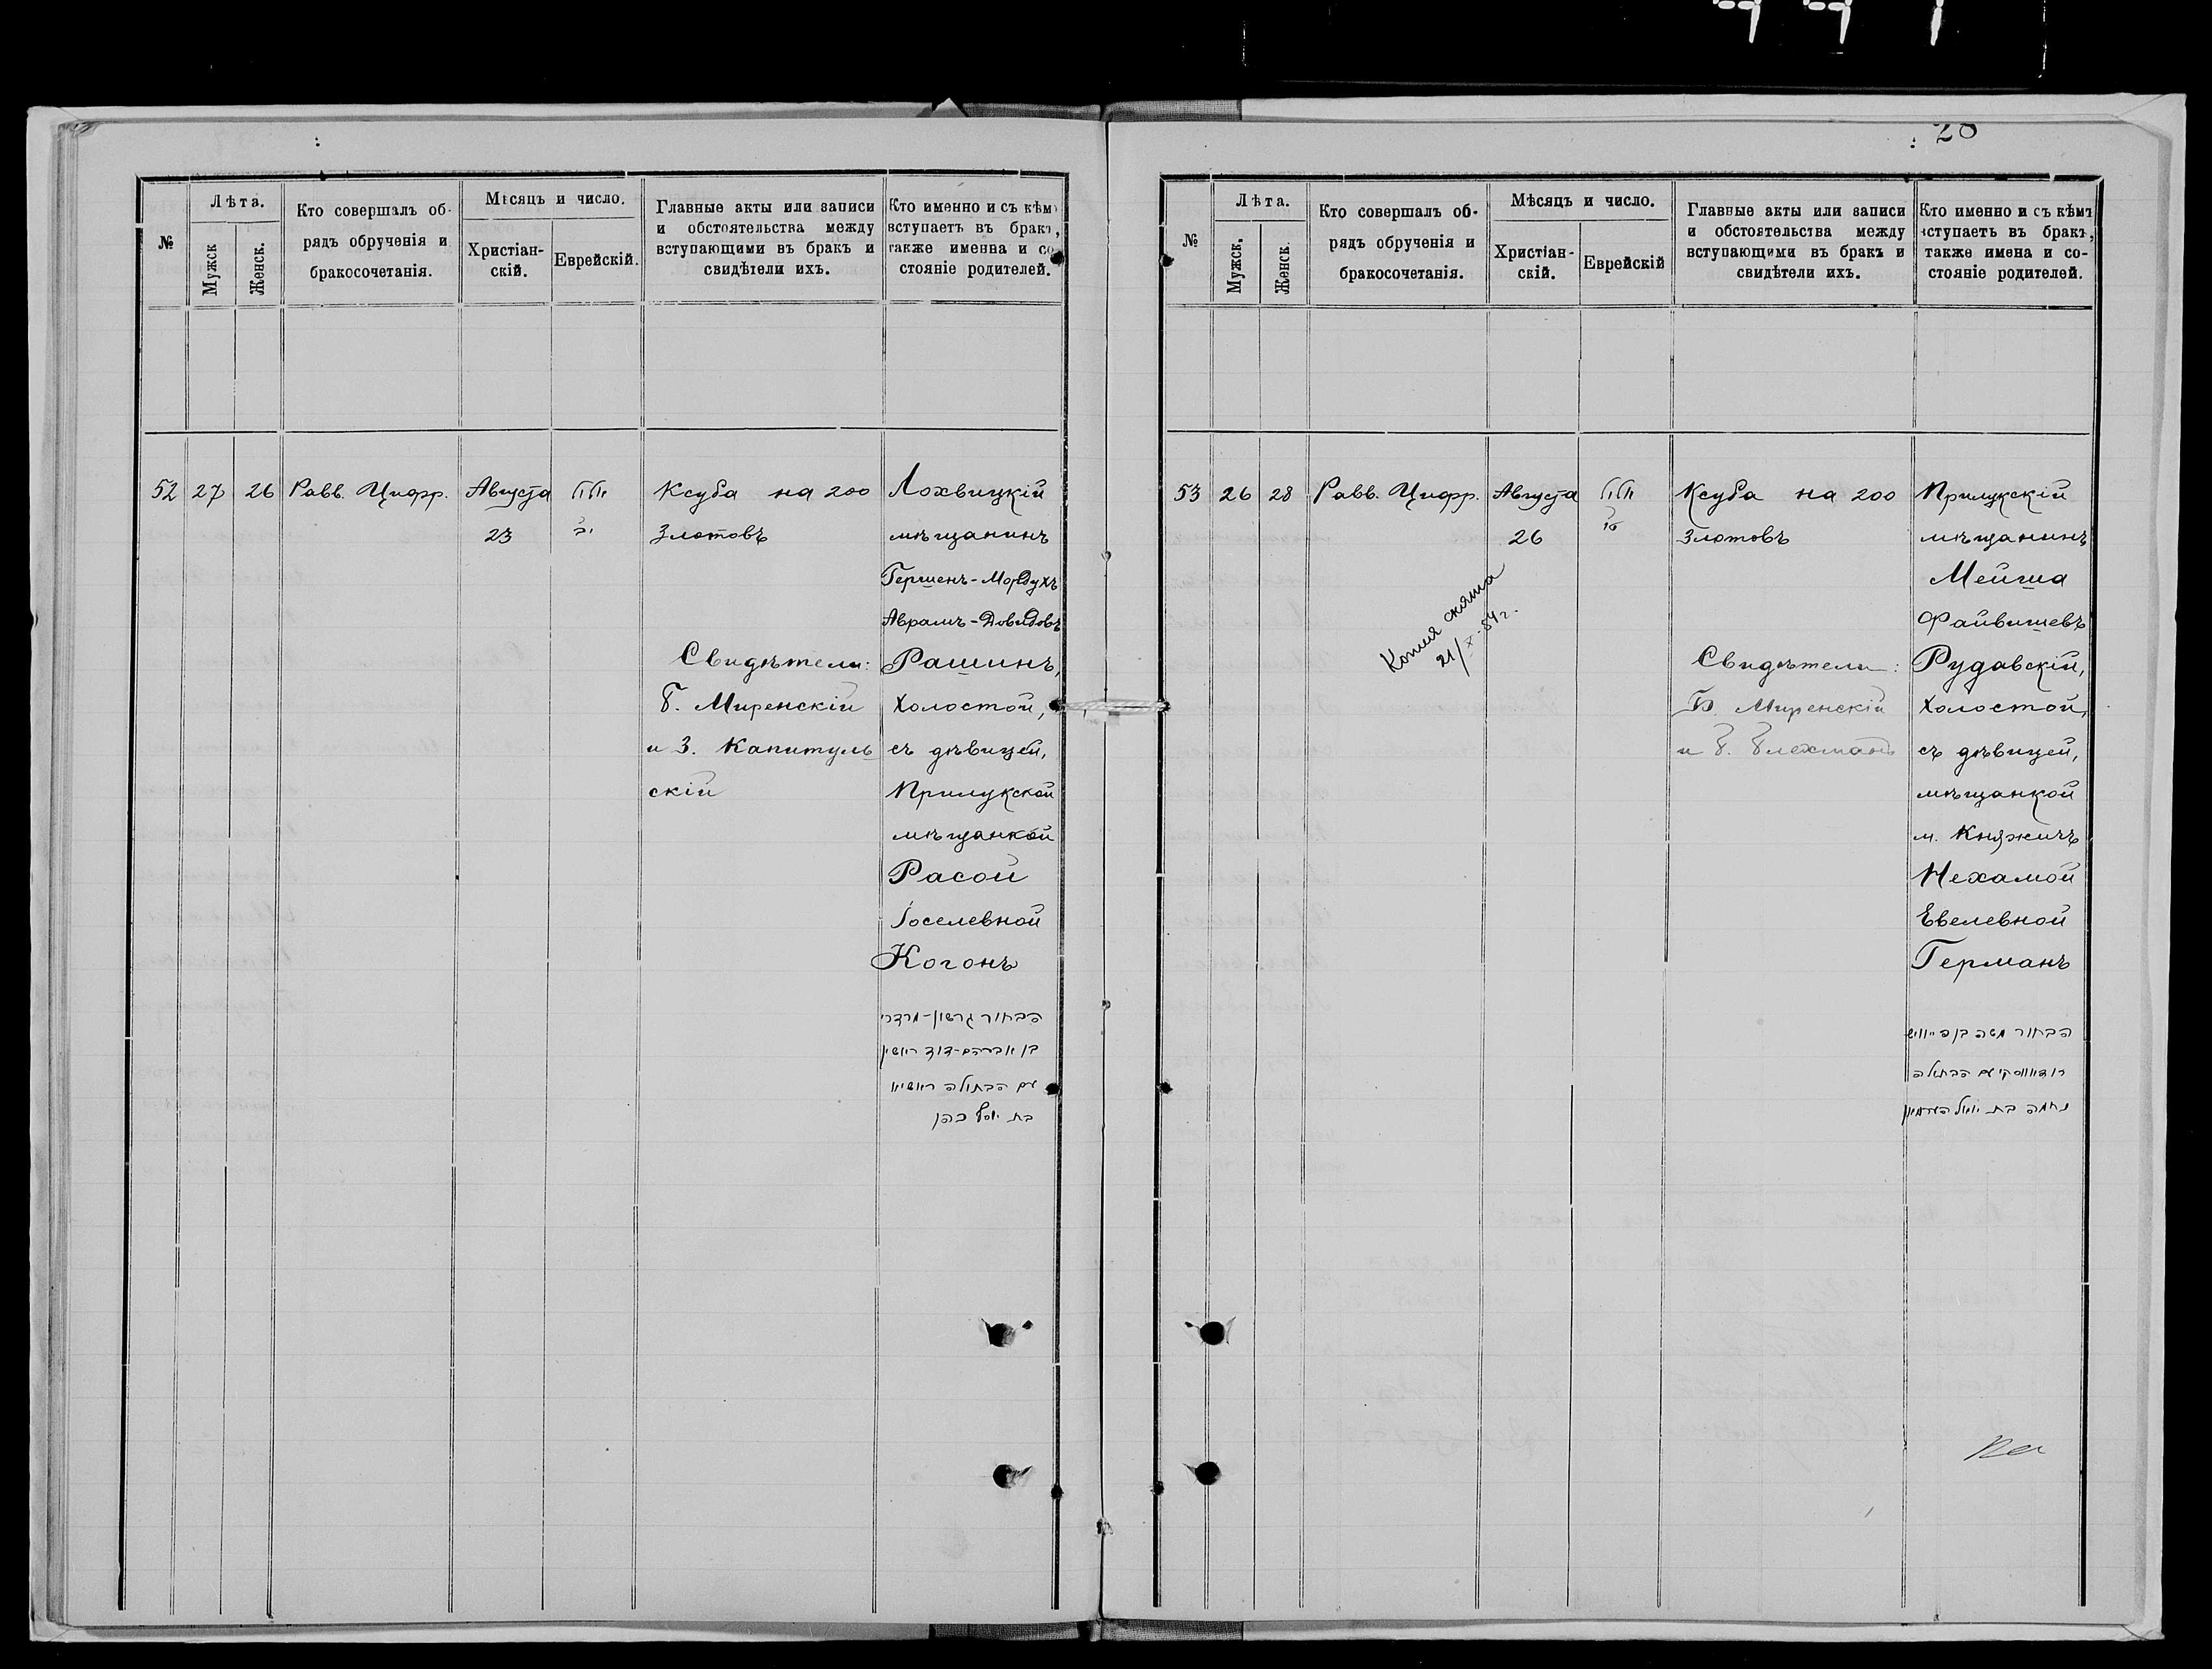 28
№
Лѣта.
Мужск
Женск.
Кто совершалъ об-
рядъ обрученія и
бракосочетанія.
Мѣсяцъ и число.
Христіан-
скій.
Еврейскій.
Главные акты или записи
и обстоятельства между
вступающими въ бракъ и
свидѣтели ихъ.
Кто именно и съ кѣмъ
вступаетъ въ бракъ,
также имена и со-
стояніе родителей.
52 27 26 Равв. Цифр. Августа
23
Ксуба на 200
Злотовъ
Свидѣтели:
Б. Миренскій
и З. Капитуль
скій
Лохвицкій
мѣщанинъ
Гершенъ-Мордухъ
Аврамъ-Довидовъ
Рашинъ,
холостой,
съ дѣвицей,
Прилукской
мѣщанкой
Расой
Іоселевной
Когонъ
הבחור גרשון-מרדכי
בן אברהם-דוד ראשין
עם הבתולה ראשיא
בת יוסף כהן
№
Лѣта.
Мужск.
Женск.
Кто совершалъ об-
рядъ обрученія и
бракосочетанія.
Мѣсяцъ и число.
Христіан-
скій.
Еврейскій
Главные акты или записи
и обстоятельства между
вступающими въ бракъ и
свидѣтели ихъ.
Кто именно и съ кѣмъ
вступаетъ въ бракъ,
также имена и со-
стояніе родителей.
53 26 28 Равв. Цифр. Августа
26
Копия снята
21/X-84г.
Ксуба на 200
Злотовъ
Свидѣтели:
Б. Миренскій
и Б. Блехманъ
Прилукскій
мѣщанинъ
Мейша
Файвишевъ
Рудавскій,
холостой,
съ дѣвицей,
мѣщанкой
м. Княжичъ
Нехамой
Евелевной
Германъ
הבחור משה בן פייוויש
רודאווסקי עם הבתולה
נחמה בת יואל הערמאן